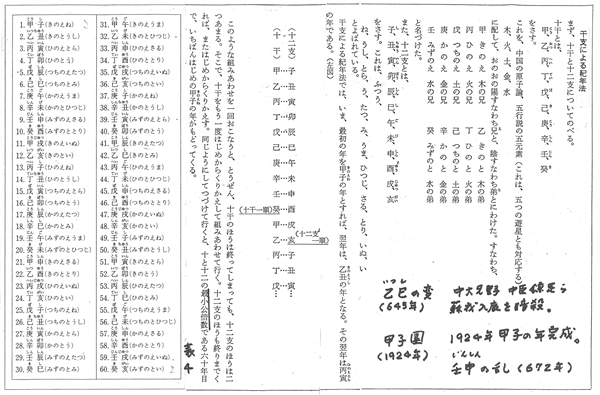 干支による紀年法
まず、十干と十二支についてのべる。
十干とは、
甲、乙、丙、丁、戊、己、庚、辛、壬、癸
をさす。
これを、中国の原子論、五行説の五元素（これは、五つの遊星とも対応する）
木、火、土、金、水
に配して、おのおの陽すなわち兄と、陰すなわち弟とにわけた。すなわち、
甲 きのえ 木の兄 乙 きのと 木の弟
丙 ひのえ 火の兄 丁 ひのと 火の弟
戊 つちのえ 土の兄 己 つちのと 土の弟
庚 かのえ 金の兄 辛 かのと 金の弟
壬 みずのえ 水の兄 癸 みずのと 水の弟
と名づけた。
また、十二支とは、
子、丑、寅、卯、辰、巳、午、未、申、酉、戌、亥
をさす。これは、ふつう、
ね、うし、とら、う、たつ、み、うま、ひつじ、さる、とり、いぬ、い
とよばれている。
干支による紀年法では、いま、最初の年を甲子の年とすれば、翌年は、乙丑の年となる。その翌年は丙寅
の年である。（左図）
いっし
乙巳の変
(645年)
中大兄 中臣鎌足ら
蘇我入鹿を暗殺。
甲子園
(1924年)
1924年甲子の年完成。
じんしん
壬申の乱(672年)
〈十二支一順〉
〈十二支〉 子 丑 寅 卯 辰 巳 午 未 申 酉 戌 亥 子 丑 寅…
〈十干〉 甲 乙 丙 丁 戊 己 庚 辛 壬 癸 甲 乙 丙 丁 戊…
〈十干一順〉
このような組みあわせを一回おこなうと、とうぜん、十干のほうは終ってしまっても、十二支のほうは二
つあまる。そこで、十干をもう一度はじめからくりかえして組みあわせて行く。十二支のほうも終りまでく
れば、またはじめからくりかえす。同じようにしてつづけて行くと、十と十二の最小公倍数である六十年目
で、いちばんはじめの甲子の年がもどってくる。
表4
1. 甲子(きのえね)
2. 乙丑(きのとうし)
3. 丙寅(ひのえとら)
4. 丁卯(ひのとう)
5. 戊辰(つちのえたつ)
6. 己巳(つちのとみ)
7. 庚午(かのえうま)
8. 辛未(かのとひつじ)
9. 壬申(みずのえさる)
10. 癸酉(みずのととり)
11. 甲戌(きのえいぬ)
12. 乙亥(きのとい)
13. 丙子(ひのえね)
14. 丁丑(ひのとうし)
15. 戊寅(つちのえとら)
16. 己卯(つちのとう)
17. 庚辰(かのえたつ)
18. 辛巳(かのとみ)
19. 壬午(みずのえうま)
20. 癸未(みずのとひつじ)
21. 甲申(きのえさる)
22. 乙酉(きのととり)
23. 丙戌(ひのえいぬ)
24. 丁亥(ひのとい)
25. 戊子(つちのえね)
26. 己丑(つちのとうし)
27. 庚寅(かのえとら)
28. 辛卯(かのとう)
29. 壬辰(みずのえたつ)
30. 癸巳(みずのとみ)
31. 甲午(きのえうま)
32. 乙未(きのとひつじ)
33. 丙申(ひのえさる)
34. 丁酉(ひのととり)
35. 戊戌(つちのえいぬ)
36. 己亥(つちのとい)
37. 庚子(かのえね)
38. 辛丑(かのとうし)
39. 壬寅(みずのえとら)
40. 癸卯(みずのとう)
41. 甲辰(きのえたつ)
42. 乙巳(きのとみ)
43. 丙午(ひのえうま)
44. 丁未(ひのとひつじ)
45. 戊申(つちのえさる)
46. 己酉(つちのととり)
47. 庚戌(かのえいぬ)
48. 辛亥(かのとい)
49. 壬子(みずのえね)
50. 癸丑(みずのとうし)
51. 甲寅(きのえとら)
52. 乙卯(きのとう)
53. 丙辰(ひのえたつ)
54. 丁巳(ひのとみ)
55. 戊午(つちのえうま)
56. 己未(つちのとひつじ)
57. 庚申(かのえさる)
58. 辛酉(かのととり)
59. 壬戌(みずのえいぬ)
60. 癸亥(みずのとい)